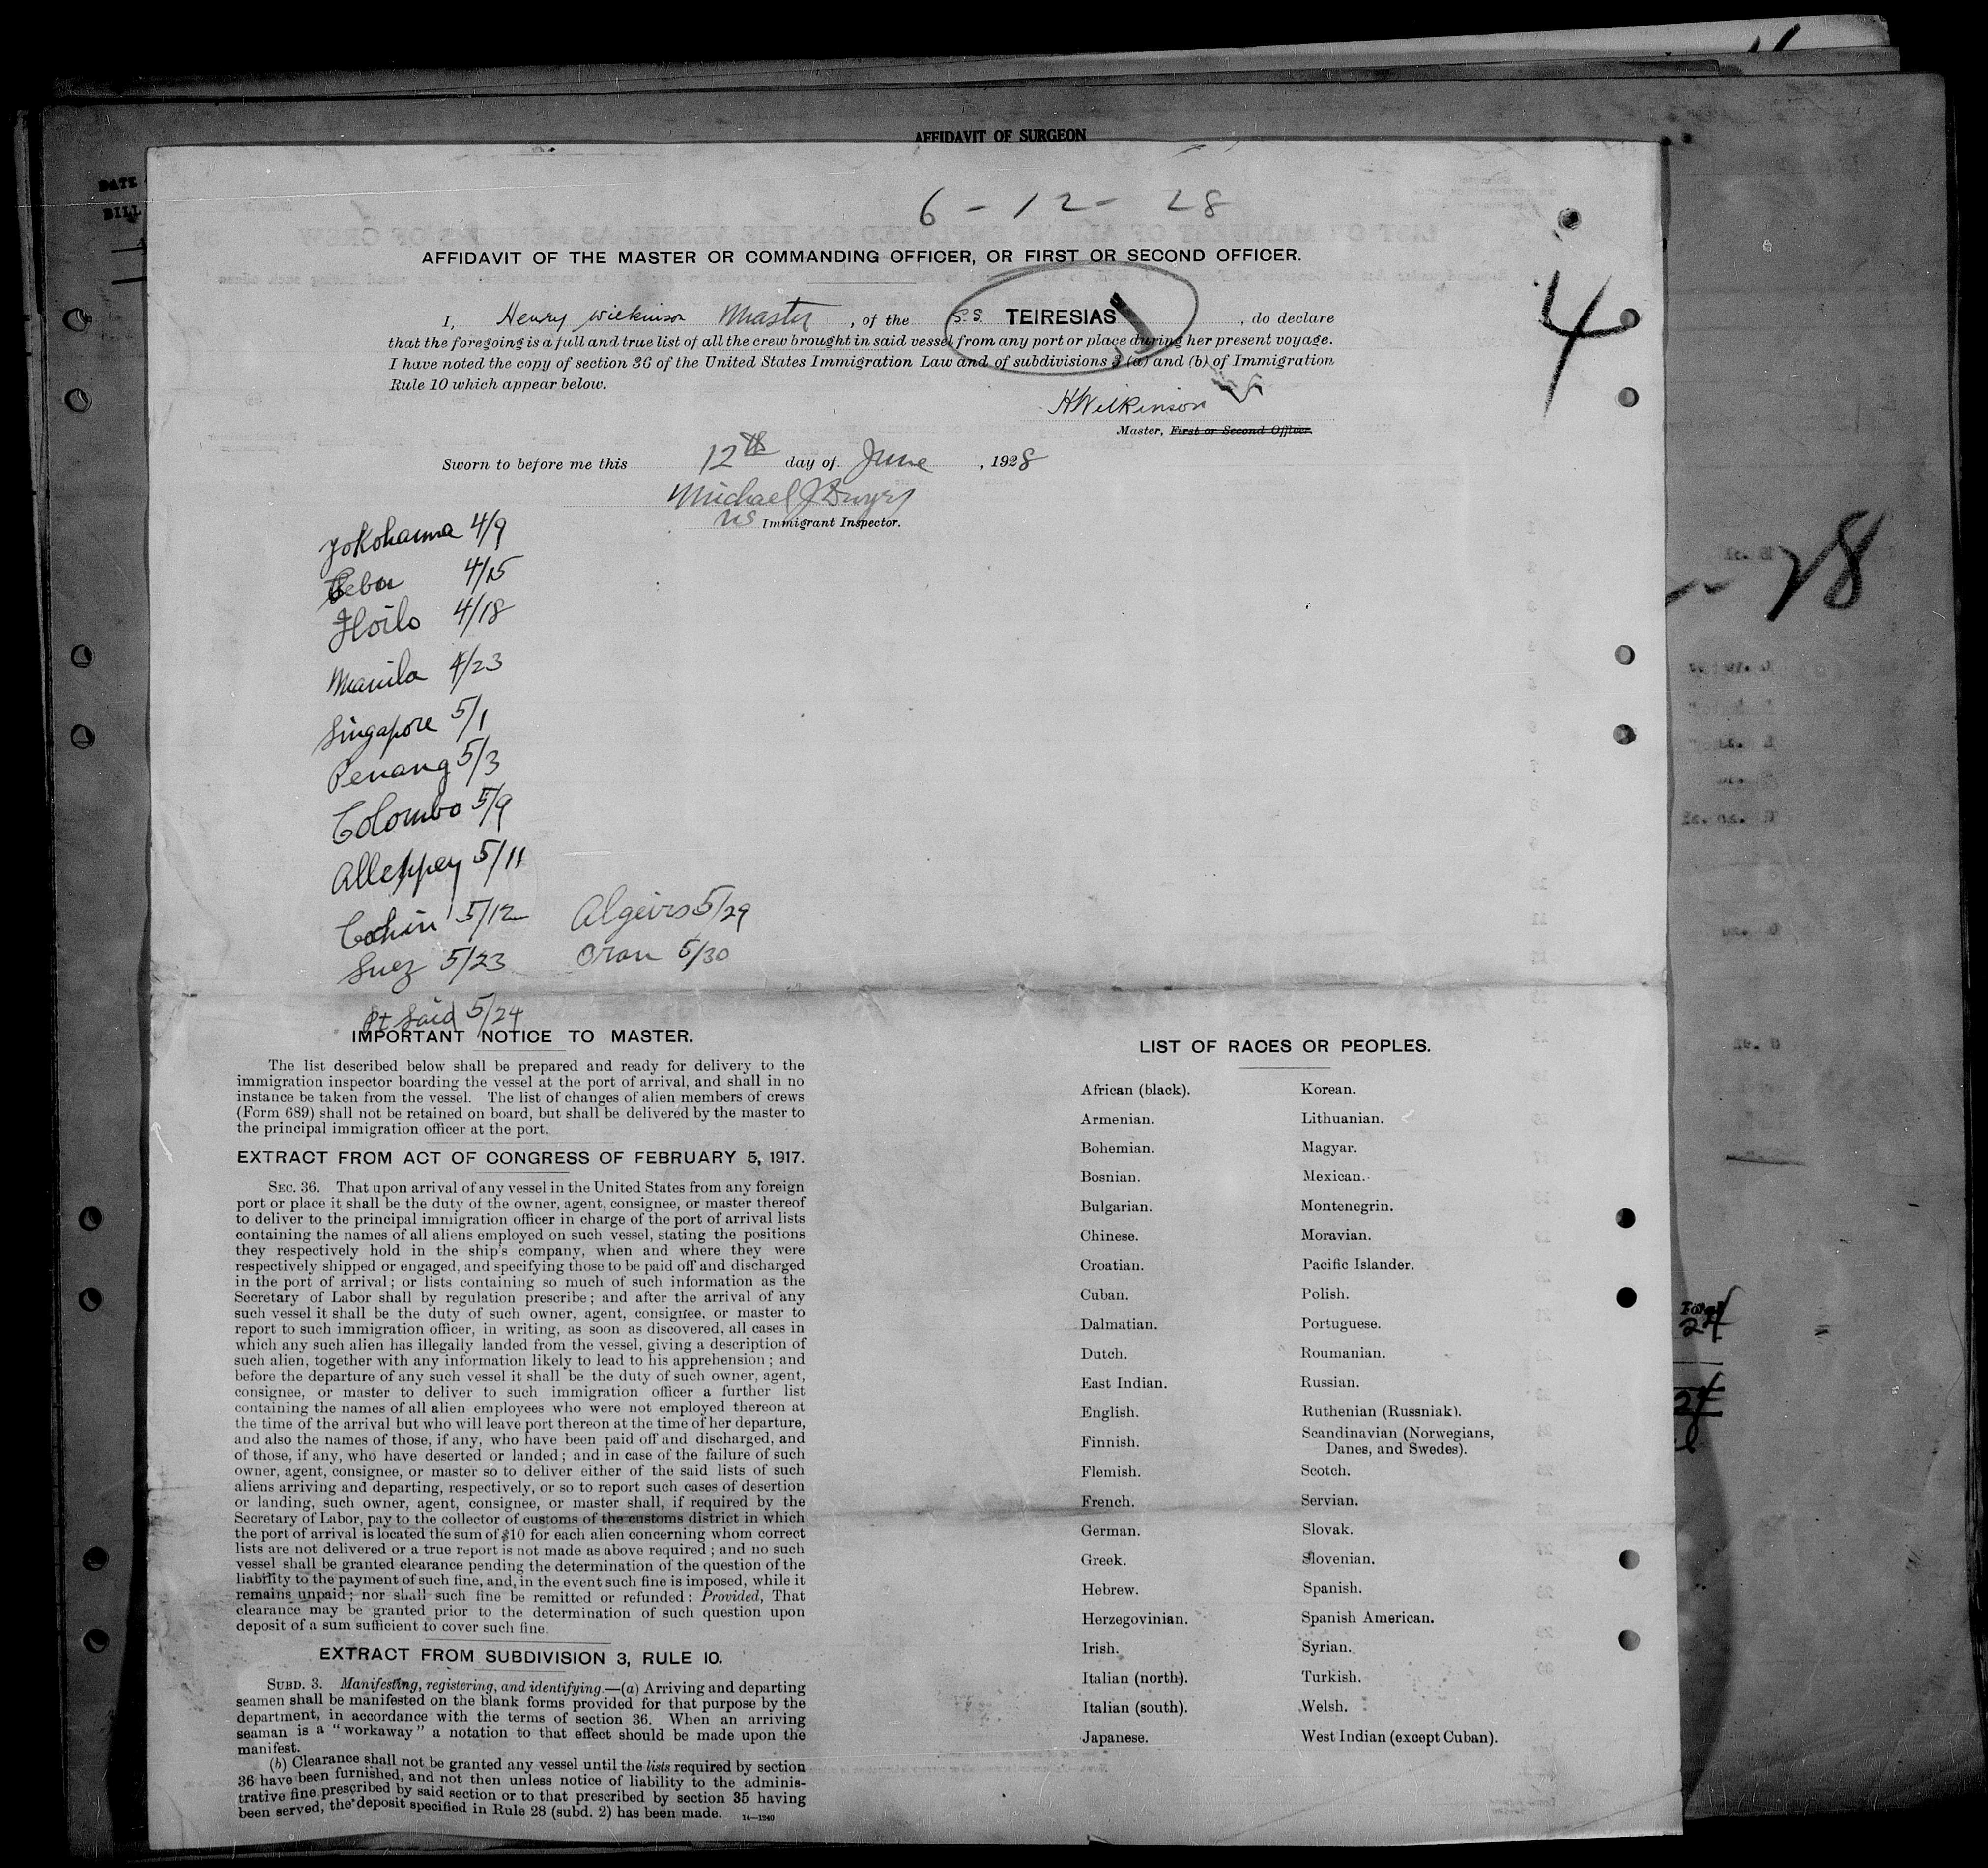 AFFIDAVIT OF SURGEON
DATE
BILL
6 - 12 - 28
AFFIDAVIT OF THE MASTER OR COMMANDING OFFICER, OR FIRST OR SECOND OFFICER.
4
I, Henry Wilkinson Master, of the S.S. TEIRESIAS, do declare
that the foregoing is a full and true list of all the crew brought in said vessel from any port or place during her present voyage.
I have noted the copy of section 36 of the United States Immigration Law and of subdivisions 3 (a) and (b) of Immigration
Rule 10 which appear below.
HWilkinson
Master, First or Second Officer.
Sworn to before me this 12th day of June, 1928
Michael J Dwyer
US Immigrant Inspector.
Yokohama 4/9
Cebu 4/15
Iloilo 4/18
Manila 4/23
Singapore 5/1
Penang 5/3
Colombo 5/9
Alleppey 5/11
Cochin 5/12 Algeirs 5/29
Suez 5/23 Oran 5/30
Pt Said 5/24
28
IMPORTANT NOTICE TO MASTER.
The list described below shall be prepared and ready for delivery to the
immigration inspector boarding the vessel at the port of arrival, and shall in no
instance be taken from the vessel. The list of changes of alien members of crews
(Form 689) shall not be retained on board, but shall be delivered by the master to
the principal immigration officer at the port.
EXTRACT FROM ACT OF CONGRESS OF FEBRUARY 5, 1917.
SEC. 36. That upon arrival of any vessel in the United States from any foreign
port or place it shall be the duty of the owner, agent, consignee, or master thereof
to deliver to the principal immigration officer in charge of the port of arrival lists
containing the names of all aliens employed on such vessel, stating the positions
they respectively hold in the ship's company, when and where they were
respectively shipped or engaged, and specifying those to be paid off and discharged
in the port of arrival; or lists containing so much of such information as the
Secretary of Labor shall by regulation prescribe; and after the arrival of any
such vessel it shall be the duty of such owner, agent, consignee, or master to
report to such immigration officer, in writing, as soon as discovered, all cases in
which any such alien has illegally landed from the vessel, giving a description of
such alien, together with any information likely to lead to his apprehension; and
before the departure of any such vessel it shall be the duty of such owner, agent,
consignee, or master to deliver to such immigration officer a further list
containing the names of all alien employees who were not employed thereon at
the time of the arrival but who will leave port thereon at the time of her departure,
and also the names of those, if any, who have been paid off and discharged, and
of those, if any, who have deserted or landed; and in case of the failure of such
owner, agent, consignee, or master so to deliver either of the said lists of such
aliens arriving and departing, respectively, or so to report such cases of desertion
or landing, such owner, agent, consignee, or master shall, if required by the
Secretary of Labor, pay to the collector of customs of the customs district in which
the port of arrival is located the sum of $10 for each alien concerning whom correct
lists are not delivered or a true report is not made as above required; and no such
vessel shall be granted clearance pending the determination of the question of the
liability to the payment of such fine, and, in the event such fine is imposed, while it
remains unpaid; nor shall such fine be remitted or refunded: Provided, That
clearance may be granted prior to the determination of such question upon
deposit of a sum sufficient to cover such fine.
EXTRACT FROM SUBDIVISION 3, RULE 10.
SUBD. 3. Manifesting, registering, and identifying.—(a) Arriving and departing
seamen shall be manifested on the blank forms provided for that purpose by the
department, in accordance with the terms of section 36. When an arriving
seaman is a "workaway" a notation to that effect should be made upon the
manifest.
(b) Clearance shall not be granted any vessel until the lists required by section
36 have been furnished, and not then unless notice of liability to the adminis-
trative fine prescribed by said section or to that prescribed by section 35 having
been served, the deposit specified in Rule 28 (subd. 2) has been made. 14—1240
LIST OF RACES OR PEOPLES.
African (black).
Armenian.
Bohemian.
Bosnian.
Bulgarian.
Chinese.
Croatian.
Cuban.
Dalmatian.
Dutch.
East Indian.
English.
Finnish.
Flemish.
French.
German.
Greek.
Hebrew.
Herzegovinian.
Irish.
Italian (north).
Italian (south).
Japanese.
Korean.
Lithuanian.
Magyar.
Mexican.
Montenegrin.
Moravian.
Pacific Islander.
Polish.
Portuguese.
Roumanian.
Russian.
Ruthenian (Russniak).
Scandinavian (Norwegians,
Danes, and Swedes).
Scotch.
Servian.
Slovak.
Slovenian.
Spanish.
Spanish American.
Syrian.
Turkish.
Welsh.
West Indian (except Cuban).
Total
24
24